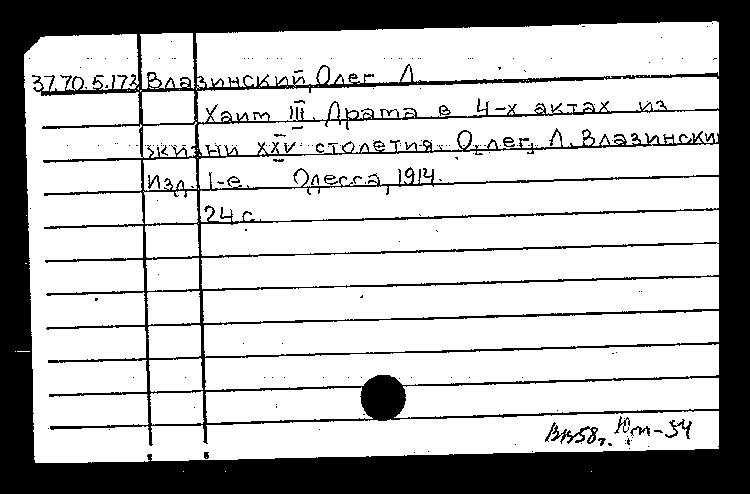 37.70.5.173 Влазинский, Олег Л.
Хаим III. Драма в 4-х актах из
жизни XXV столетия. О[лег] Л. Влазински
Изд. 1-е. Одесса, 1914.
24 с.